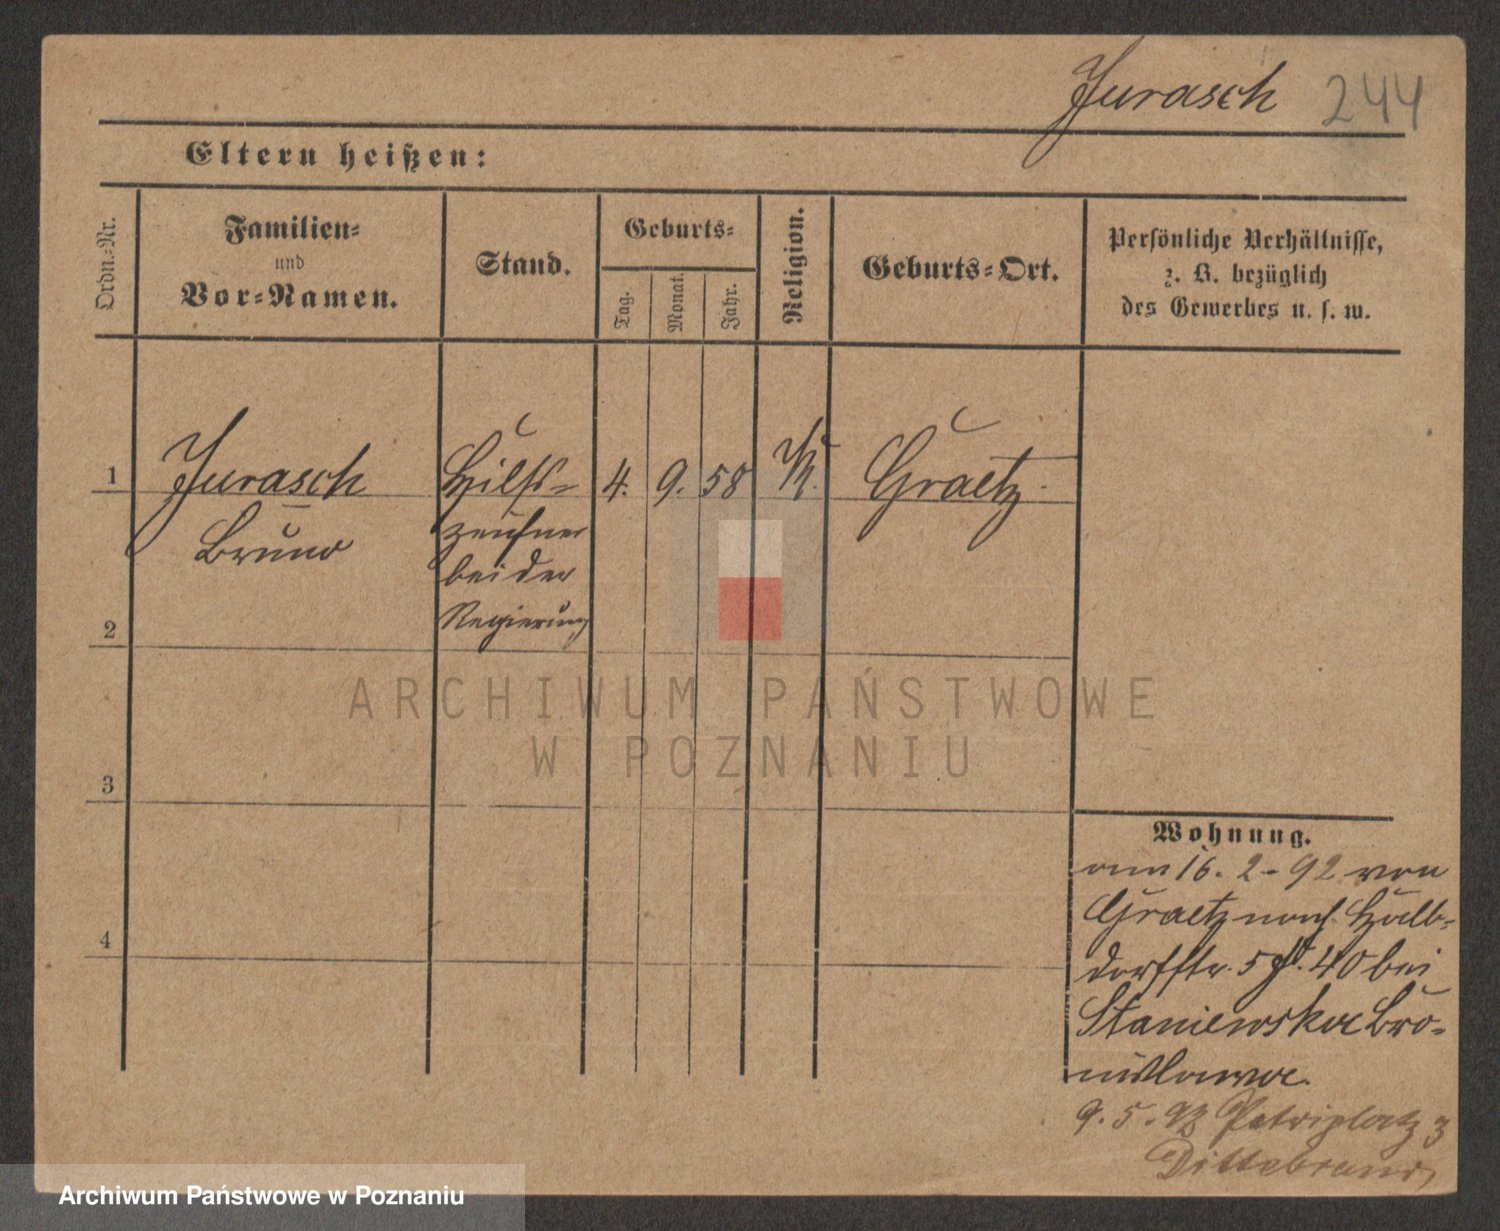 Jurasch 244
Eltern heißen:
Ordn.-Nr.
Familien-
und
Vor-Namen.
Stand.
Geburts-
Tag.
Monat.
Jahr.
Religion.
Geburts-Ort.
Persönliche Verhältnisse,
z. B. bezüglich
des Gewerbes u. s. w.
1 Jurasch Hilfs- 4. 9. 58 K. Graetz.
Bruno zeichner
bei der
2 Regierung
3
4
Wohnung.
am 16. 2. 92 von
Graetz nach Halb-
dorfstr. 5 40 bei
Staniewska Bro-
nislawa.
9. 5. 92 Petriplatz 3
Dittebrand
ARCHIWUM PAŃSTWOWE
W POZNANIU
Archiwum Państwowe w Poznaniu